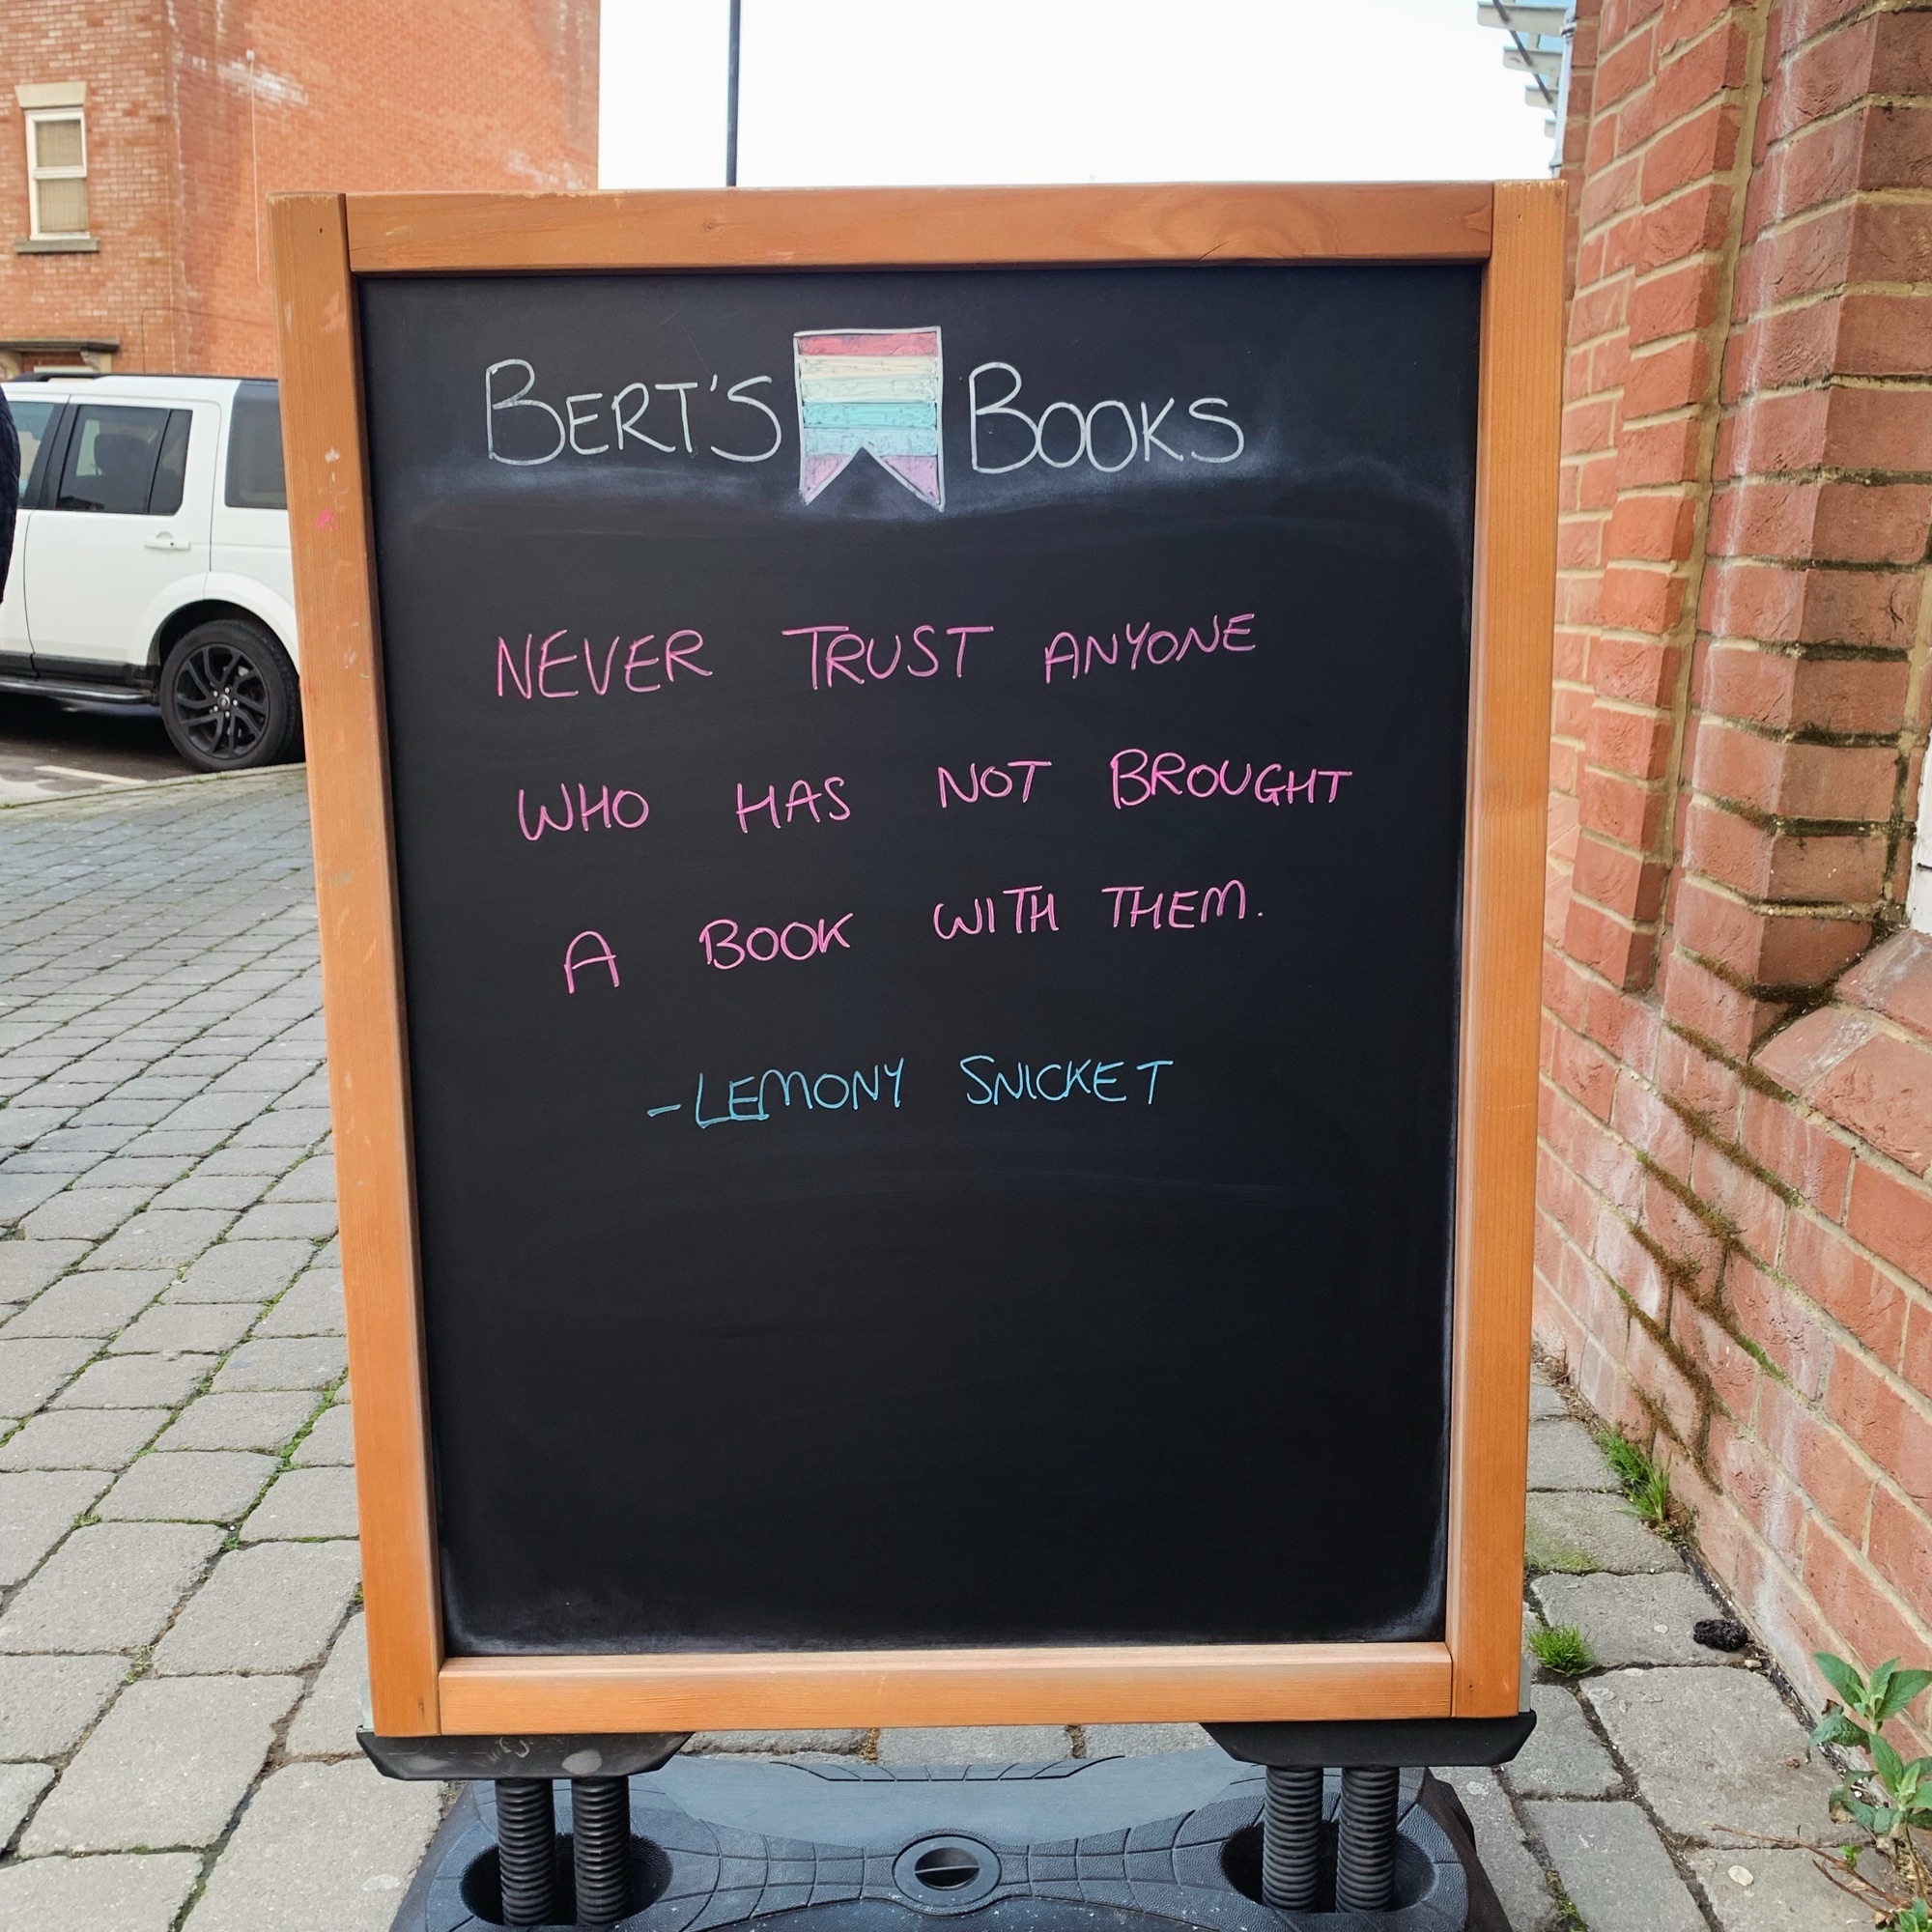 BERT'S BOOKS
NEVER TRUST ANYONE
WHO HAS NOT BROUGHT
A BOOK WITH THEM.
-LEMONY SNICKET